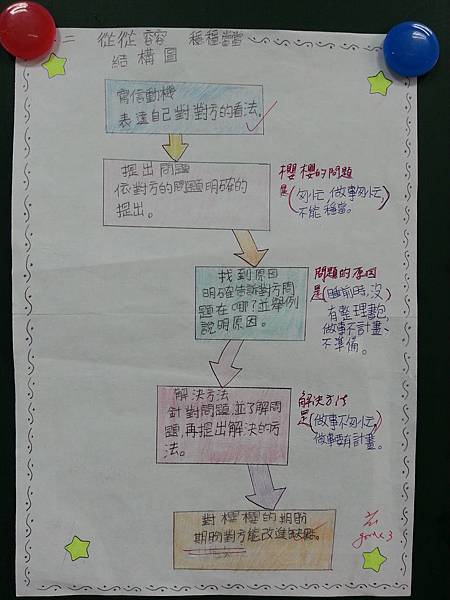 二 從從容容 穩穩當當
結構圖
寫信動機
表達自己對對方的看法。
提出問題
依對方的問題明確的
提出。
櫻櫻的問題
是(匆忙,做事匆忙,
不能穩當。
找到原因
明確告訴對方問
題在哪?並舉例
說明原因。
問題的原因
是(睡前時,沒
有整理書包,
做事不計畫、
不準備。
解決方法
針對問題,並了解問
題,再提出解決的方
法。
解決方法
是(做事不匆忙,
做事要有計畫。
對櫻櫻的期盼
期盼對方能改進缺點。